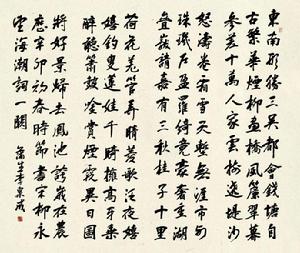 東南形勝三吳都會錢塘自
古繁華煙柳畫橋風簾翠幕
參差十萬人家雲樹遶堤沙
怒濤卷霜雪天塹無涯市列
珠璣戶盈羅綺競豪奢重湖
疊巘清嘉有三秋桂子十里
荷花羌管弄晴菱歌泛夜嬉
嬉釣叟蓮娃千騎擁高牙乘
醉聽簫鼓吟賞煙霞異日圖
將好景歸去鳳池誇 歲在農
曆辛卯初春時節書宋柳永
望海潮詞一闋